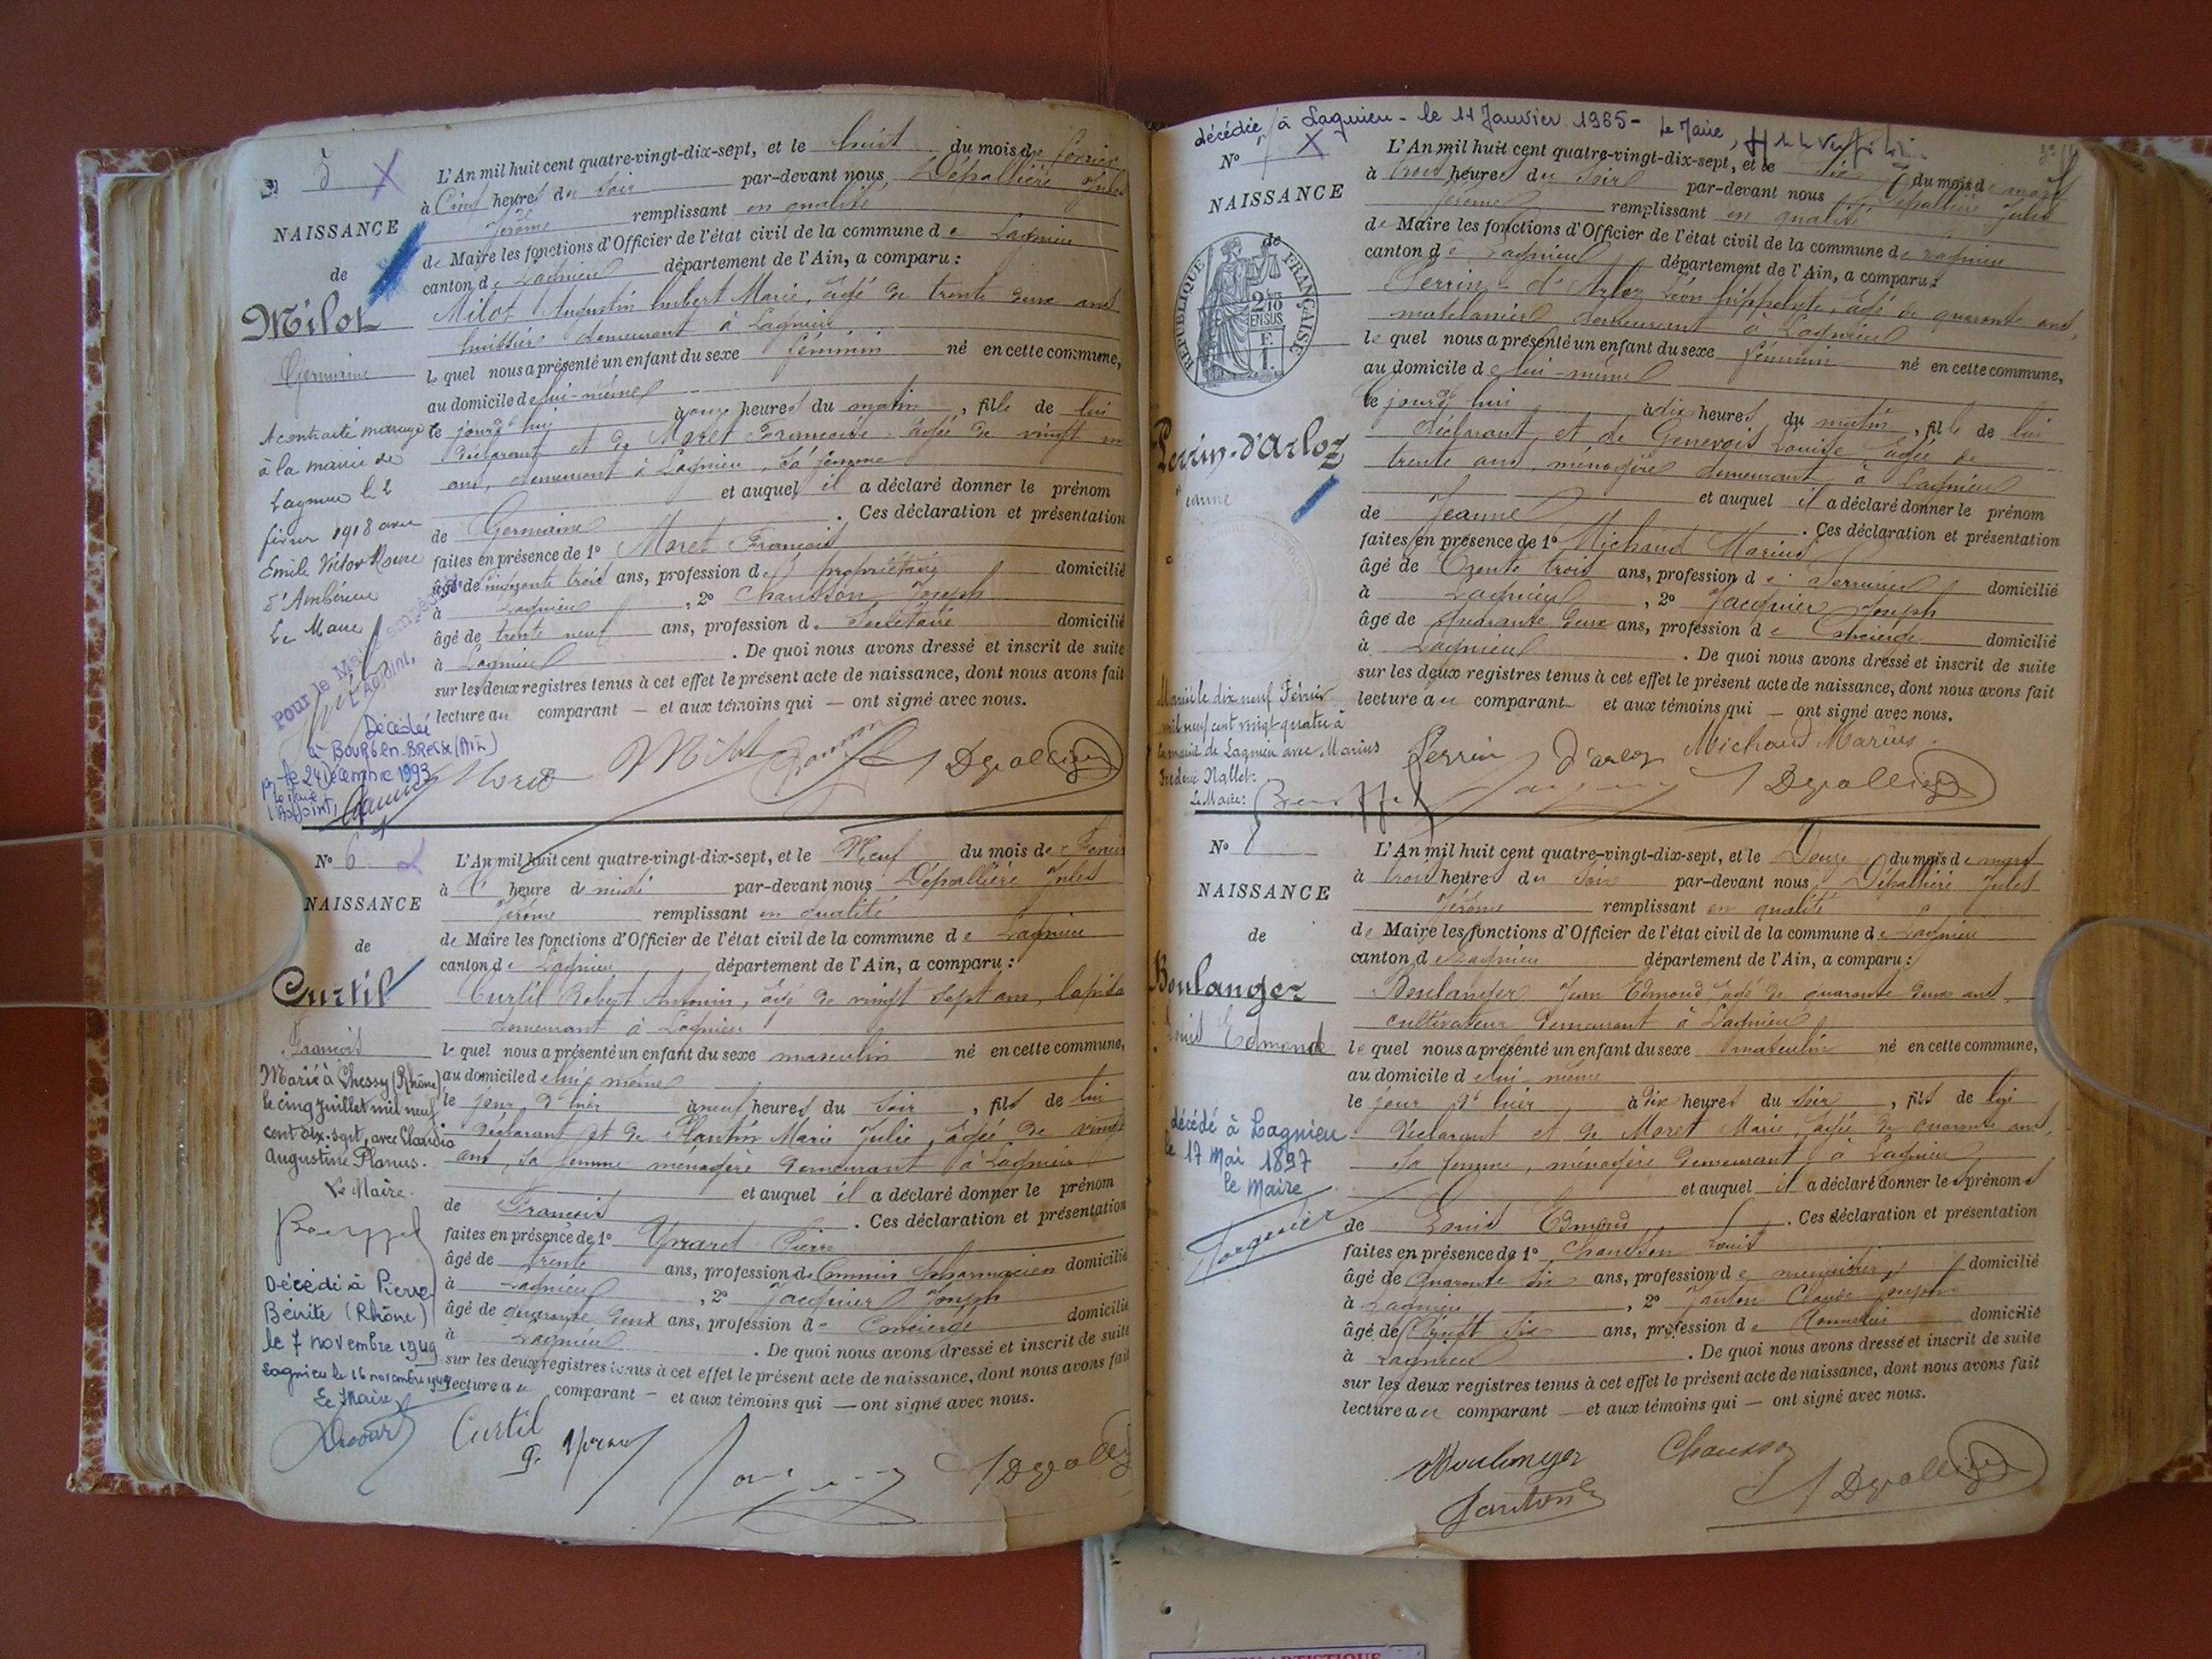 N° 5
NAISSANCE
de
Milot
Germaine
A contracté mariage
à la mairie de
Lagnieu le 2
février 1918 avec
Emile Victor
d'Ambérieu
Le Maire
Pour le Maire empêché
L'Adjoint,
Décédée
à Bourg-en-Bresse (Ain)
le 24 décembre 1993
L'Adjoint,
L'An mil huit cent quatre-vingt-dix-sept, et le huit du mois de février
à Cinq heures du soir par-devant nous, Dépallière Jules
Jérôme remplissant en qualité
de Maire les fonctions d'Officier de l'état civil de la commune de Lagnieu
canton de Lagnieu département de l'Ain, a comparu :
Milot Augustin Humbert Marie, âgé de trente deux ans
huissier demeurant à Lagnieu
lequel nous a présenté un enfant du sexe féminin né en cette commune,
au domicile de lui-même
le jourd'hui à onze heures du matin, fille de lui
déclarant et de Moret Françoise, âgée de vingt un
ans, demeurant à Lagnieu, sa femme
et auquel il a déclaré donner le prénom
de Germaine. Ces déclaration et présentation
faites en présence de 1° Moret François
âgé de cinquante trois ans, profession de propriétaire domicilié
à Lagnieu, 2° Chausson Joseph
âgé de trente neuf ans, profession de Secrétaire domicilié
à Lagnieu. De quoi nous avons dressé et inscrit de suite
sur les deux registres tenus à cet effet le présent acte de naissance, dont nous avons fait
lecture au comparant — et aux témoins qui — ont signé avec nous.
Moret Milot J Depallière
N° 6
NAISSANCE
de
Curtil
François
Marié à Chessy (Rhône)
le cinq juillet mil neuf
cent dix-sept, avec Claudia
Augustine Planus.
Le Maire
Décédé à Pierre
Bénite (Rhône)
le 7 novembre 1949
Lagnieu le 16 novembre 1949
Le Maire
L'An mil huit cent quatre-vingt-dix-sept, et le Neuf du mois de Février
à heure de midi par-devant nous Dépallière Jules
Jérôme remplissant en qualité
de Maire les fonctions d'Officier de l'état civil de la commune de Lagnieu
canton de Lagnieu département de l'Ain, a comparu :
Curtil Robert Antonin, âgé de vingt sept ans,
demeurant à Lagnieu
lequel nous a présenté un enfant du sexe masculin né en cette commune,
au domicile de lui-même
le jour d'hier à neuf heures du soir, fils de lui
déclarant et de Plantin Marie Julie, âgée de vingt
ans, sa femme ménagère demeurant à Lagnieu
et auquel il a déclaré donner le prénom
de François. Ces déclaration et présentation
faites en présence de 1° Yvrard Pierre
âgé de trente ans, profession de Commis pharmacien domicilié
à Lagnieu, 2° Jacquier Joseph
âgé de quarante deux ans, profession de Concierge domicilié
à Lagnieu. De quoi nous avons dressé et inscrit de suite
sur les deux registres tenus à cet effet le présent acte de naissance, dont nous avons fait
lecture au comparant — et aux témoins qui — ont signé avec nous.
Curtil
J Depallière
décédée à Lagnieu - le 11 Janvier 1985 - Le Maire,
N° 7
NAISSANCE
de
RÉPUBLIQUE FRANÇAISE
2/10 EN SUS
Perrin-d'Arloz
Jeanne
Mariée le dix neuf Février
mil neuf cent vingt quatre à
la mairie de Lagnieu avec Marius
Frédéric Nallet.
Le Maire:
L'An mil huit cent quatre-vingt-dix-sept, et le dix du mois de mars
à trois heures du soir par-devant nous Dépallière Jules
Jérôme remplissant en qualité
de Maire les fonctions d'Officier de l'état civil de la commune de Lagnieu
canton de Lagnieu département de l'Ain, a comparu :
Perrin-d'Arloz Léon hippolyte, âgé de quarante ans
matelassier demeurant à Lagnieu
lequel nous a présenté un enfant du sexe féminin né en cette commune,
au domicile de lui-même
le jourd'hui à dix heures du matin, fille de lui
déclarant, et de Genevois Louise âgée de
trente ans, ménagère demeurant à Lagnieu
et auquel il a déclaré donner le prénom
de Jeanne. Ces déclaration et présentation
faites en présence de 1° Michaud Marius
âgé de trente trois ans, profession de Serrurier domicilié
à Lagnieu, 2° Jacquier Joseph
âgé de quarante deux ans, profession de Concierge domicilié
à Lagnieu. De quoi nous avons dressé et inscrit de suite
sur les deux registres tenus à cet effet le présent acte de naissance, dont nous avons fait
lecture au comparant — et aux témoins qui — ont signé avec nous.
Perrin d'arloz Michaud Marius.
J Depallière
N° 8
NAISSANCE
de
Boulanger
Louis Edmond
décédé à Lagnieu
le 17 Mai 1897
le Maire
L'An mil huit cent quatre-vingt-dix-sept, et le Douze du mois de mars
à trois heures du soir par-devant nous, Dépallière Jules
Jérôme remplissant en qualité
de Maire les fonctions d'Officier de l'état civil de la commune de Lagnieu
canton de Lagnieu département de l'Ain, a comparu :
Boulanger Jean Edmond, âgé de quarante deux ans,
cultivateur demeurant à Lagnieu
lequel nous a présenté un enfant du sexe masculin né en cette commune,
au domicile de lui-même
le jour d'hier à dix heures du soir, fils de lui
déclarant et de Moret Marie, âgée de quarante ans,
sa femme, ménagère demeurant à Lagnieu
et auquel il a déclaré donner les prénoms
de Louis Edmond. Ces déclaration et présentation
faites en présence de 1° Chausson Louis
âgé de quarante six ans, profession de menuisier domicilié
à Lagnieu, 2° Janton Claude Joseph
âgé de vingt six ans, profession de domicilié
à Lagnieu. De quoi nous avons dressé et inscrit de suite
sur les deux registres tenus à cet effet le présent acte de naissance, dont nous avons fait
lecture au comparant — et aux témoins qui — ont signé avec nous.
Boulanger Chausson
Janton J Depallière